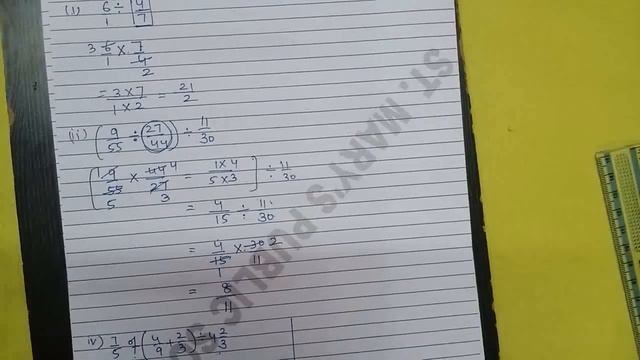 (i) 6/1 ÷ 4/7
3 6/1 × 7/4 2
= 3×7/1×2 = 21/2
(ii) (9/55 ÷ 27/44) ÷ 11/30
[1 9/55 5 × 44 4/27 3 = 1×4/5×3] ÷ 11/30
= 4/15 ÷ 11/30
= 4/15 1 × 30 2/11
= 8/11
iv) 7/5 of (4/9 + 2/3) ÷ 4 2/3
ST. MARY'S PUBLIC S